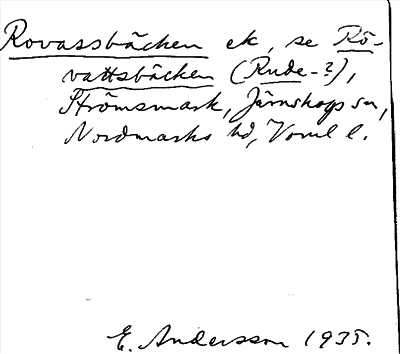 Rovassbäcken ek, se Rö-
vattsbäcken (Rude-?),
Strömsmark, Järnskogs sn,
Nordmarks hd, Vrml l.
E. Andersson 1935.